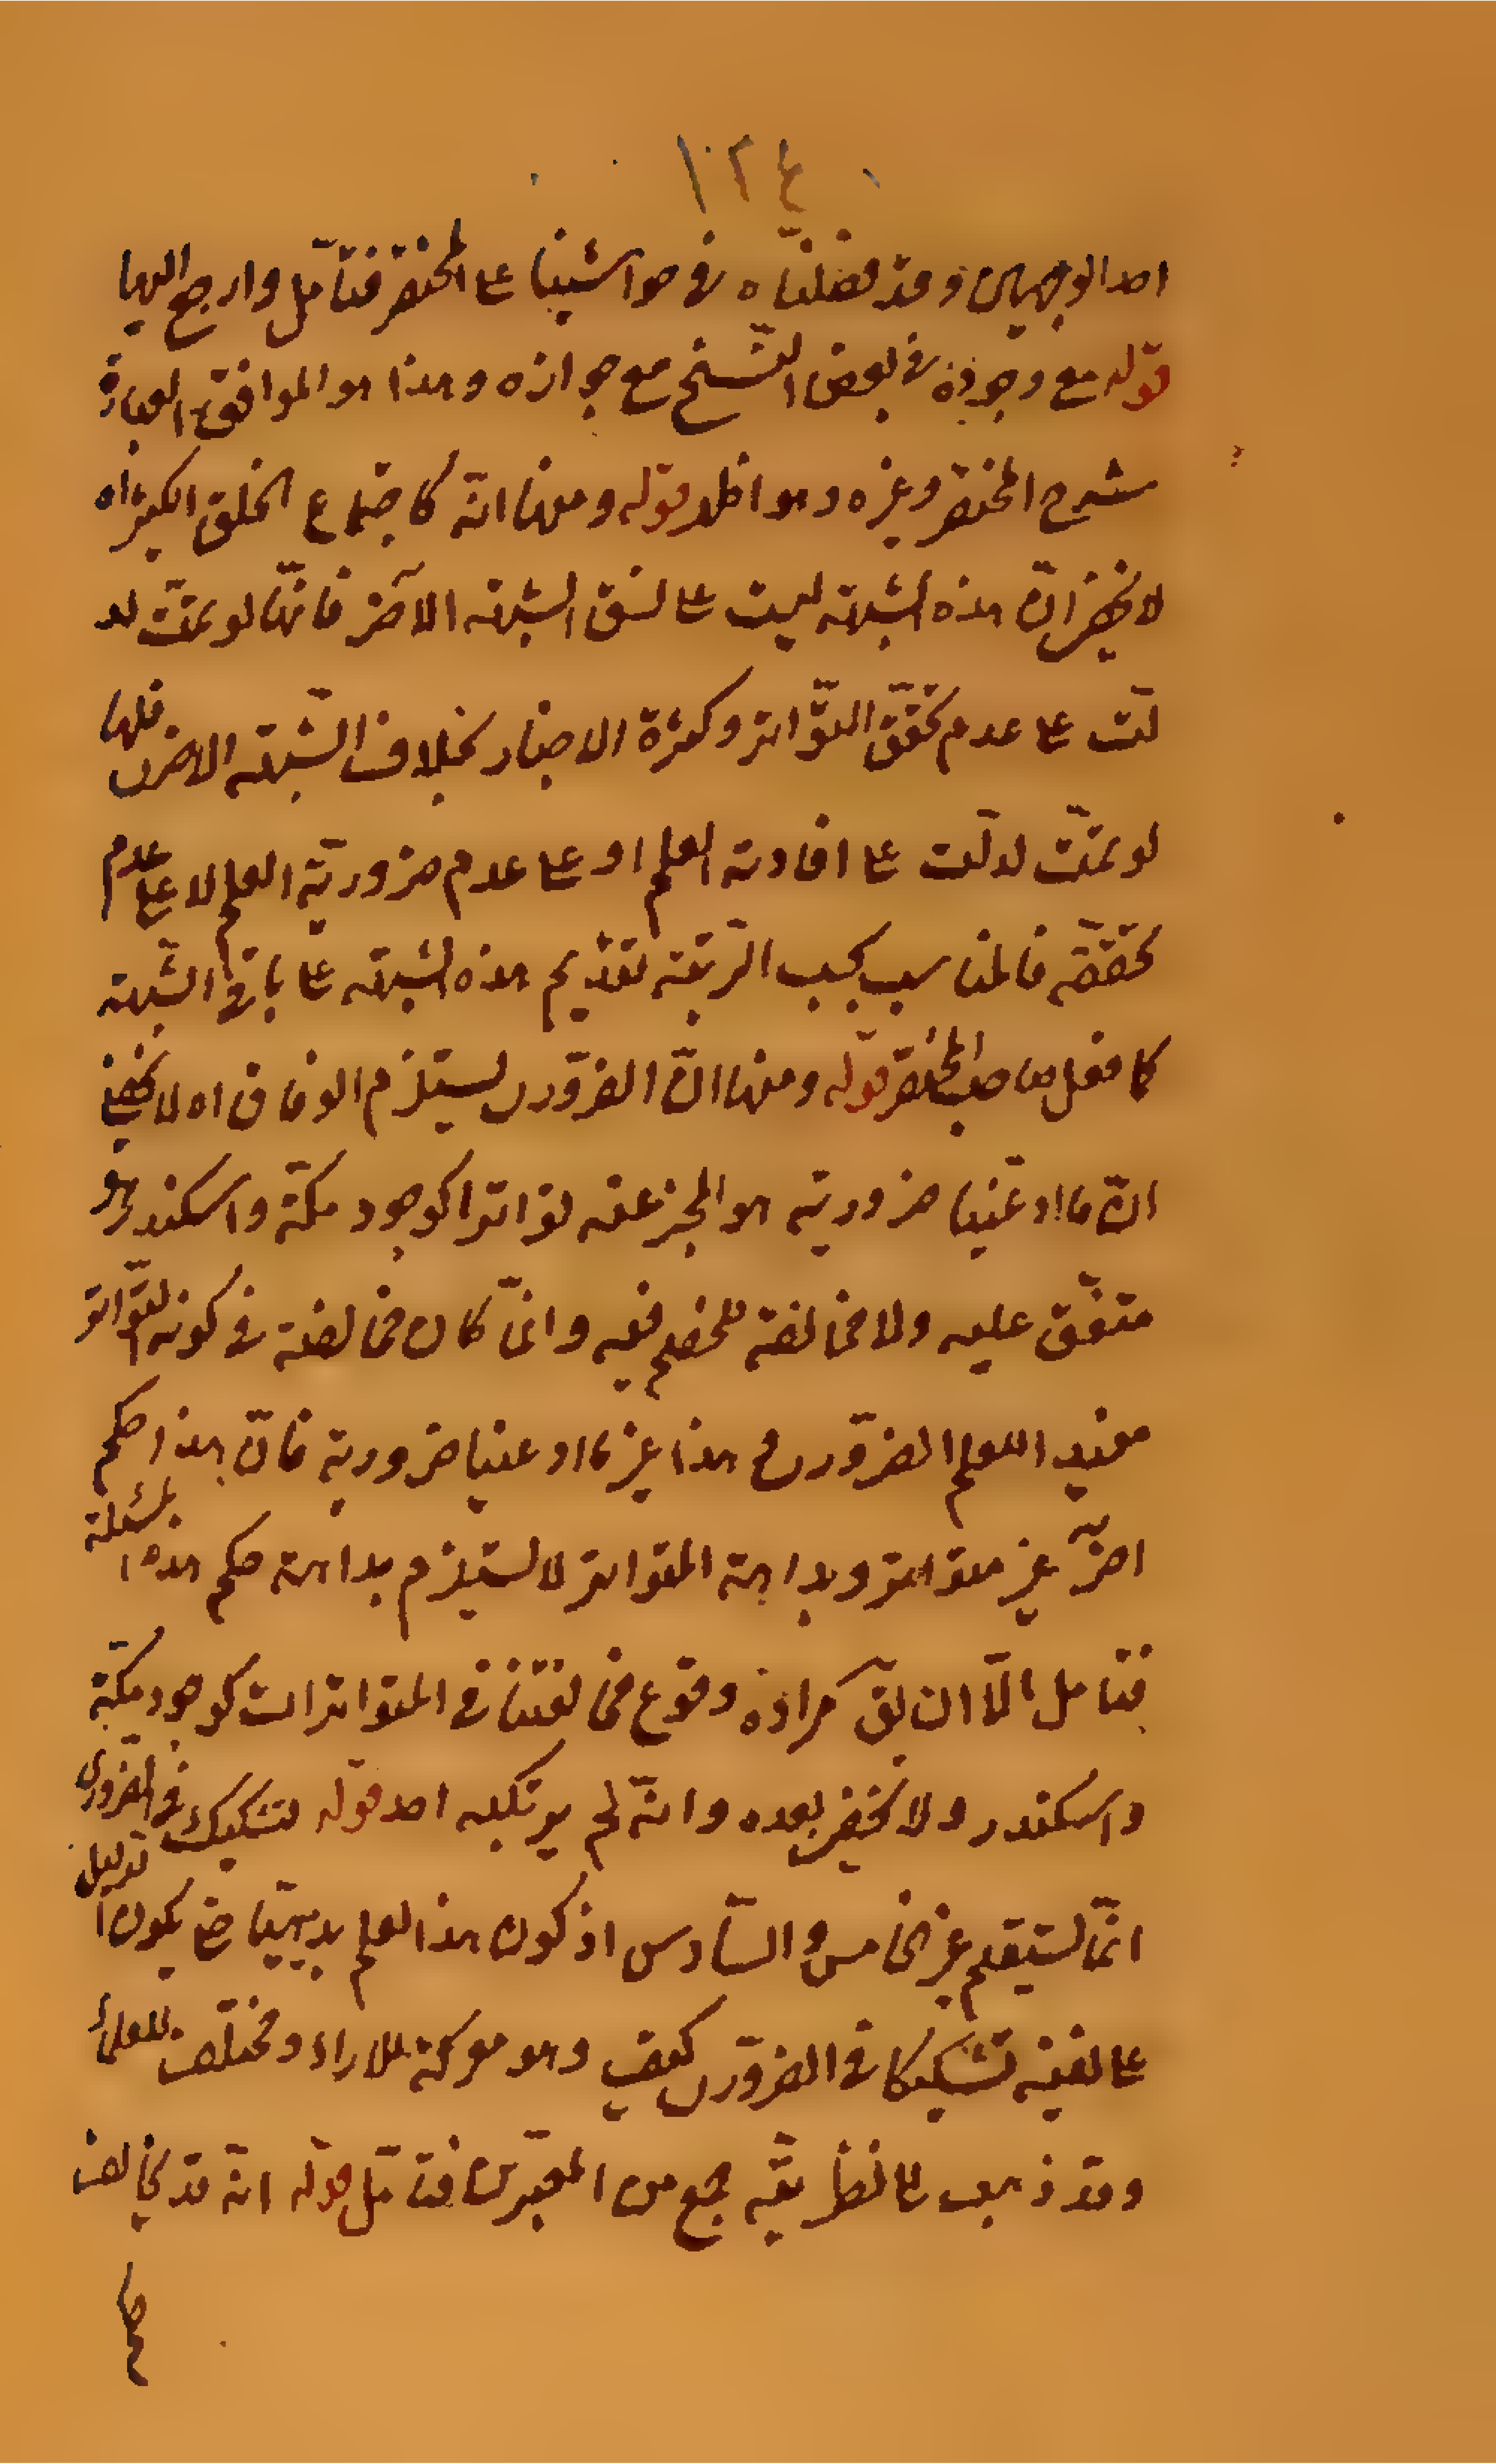 ١٢٤
احد الوجهين وقد فصّلناه في حواشينا على المختصر فتأمّل وارجع اليها
قوله مع وجوده في بعض النّسخ مع جوازه وهذا هو الموافق لعبارة
شرح المختصر وغيره وهو اظهر قوله ومنها انّه كاجتماع الخلق الكثير اه
لا يخفى انّ هذه الشبهة ليست على نسق الشبهة الاخر فانّها لو تمّت لد
لّت على عدم تحقّق التّواتر وكثرة الاخبار بخلاف الشّبهة الاخرى فانها
لو تمّت لدلّت على افادته العلم او على عدم ضروريّة العلم لا على عدم
تحقّقه فالمناسب بحسب الرّتبة تقديم هذه الشبهة على باقي الشّبهة
كما فعل صاحب المختصر قوله ومنها انّ الضّروري يستلزم الوفاق اه لا يخفى
انّ ما ادّعينا ضروريته هو المخبر عنه تواترا كوجود مكّة واسكندر وهو
متّفق عليه ولا مخالفة للخصم فيه وانّما كان مخالفته في كونه التّواتر
مفيد العلم الضّروري هذا غير ما ادعينا ضروريته فانّ هذا حكم
اخر غير متواتر وبداهة المتواتر لا يستلزم بداهة حكم هذه المسئلة
فتامل الّا ان يق مراده وقوع مخالفتنا في المتواترات كوجود مكّة
واسكندر ولا يخفى بعده وانّه لم يرتكبه احد قوله تشكيك في الضّروري
انّما يستقيم غير الخامس والسّادس اذ كون هذا العلم بديهيّا حتى يكون الدليل
على نفيه تشكيكا في الضّروري كيف وهو معركة للاراء ومختلف للعلماء
وقد ذهب على نظريّته جمع من المعتبرين فتامّل قوله انّه قد يخالف